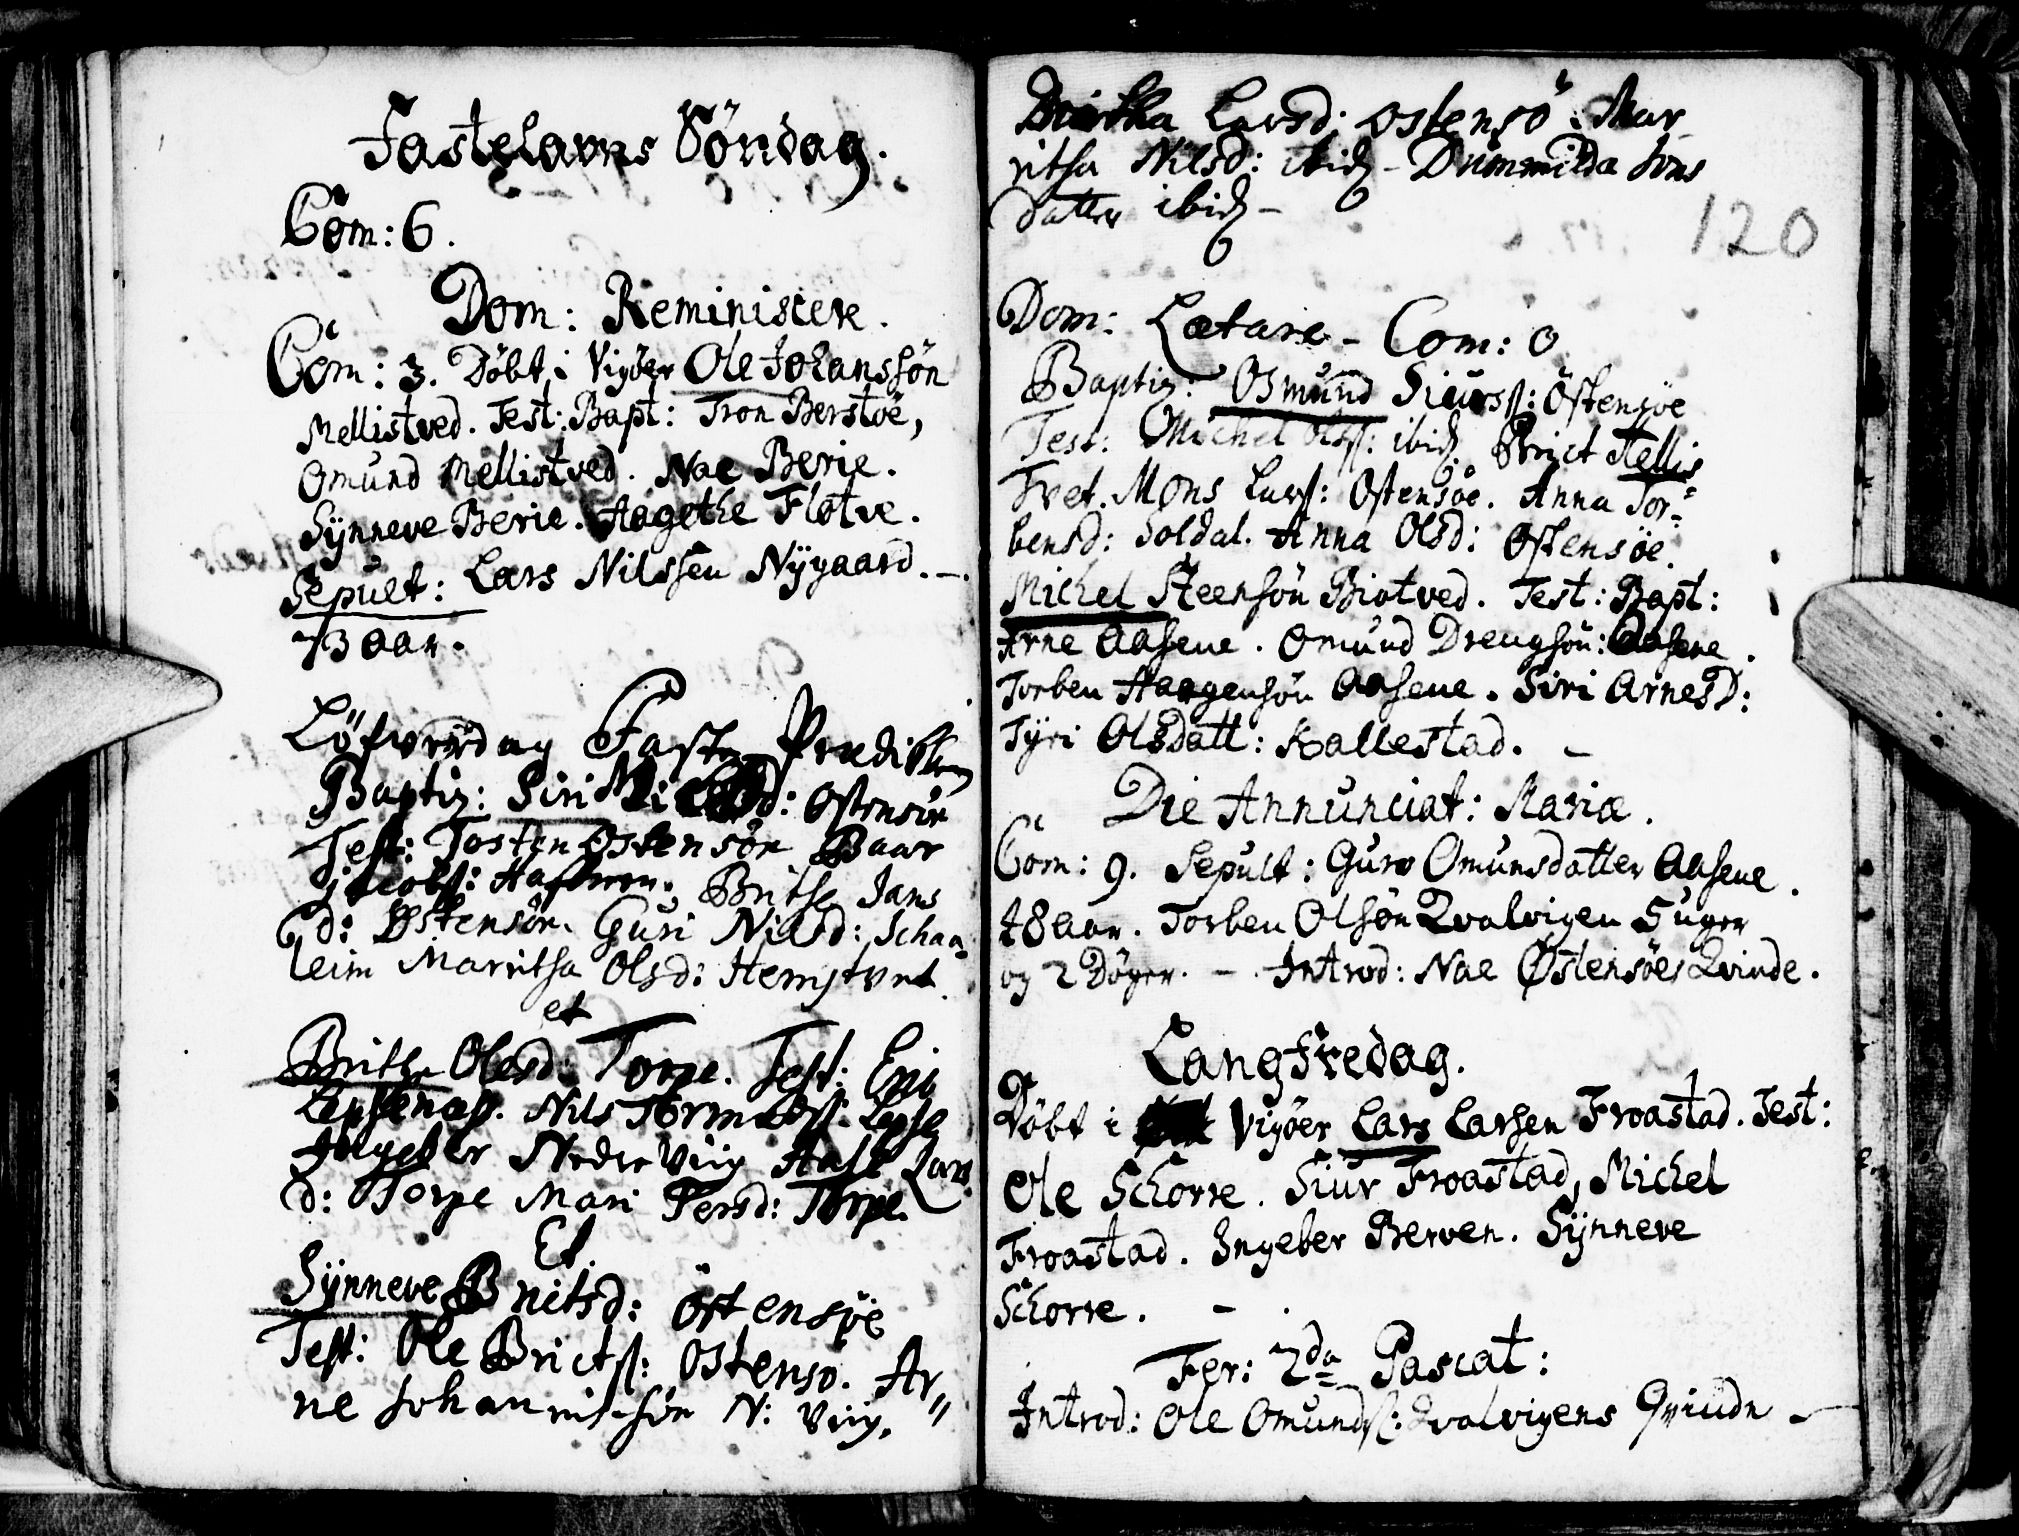 Fastelavns Söndag.
Com: 6.
Dom: Reminiscere.
Com: 3. Döbt i Vigöer Ole Johanssön
Mellistved. Test: Bapt: Tron Berstöe,
Omund Mellistved. Nae Berie.
Sÿnneve Berie. Aagethe Flotve.
Sepult: Lars Nilssen Nÿgaard. -
73 aar.
Löfverdag Faste Prædiken
Baptiz: Siri d: Ostensöe
Test: Tosten Ostensöe Baar
jacobss: Britha Jans
d: Ostensöe. Guri Nilsd: Schaa-
leim Marritha Olsd: Hemstvet.
et
Britha Olesd: Torpe. Test:
Nils Tormodss:
Ingeber Nedre Viig Lars
d: Torpe Mari Persd: Torpe.
Et.
Sÿnneve Britsd: Östensöe
Test: Ole Brictss: Ostensö. Ar"
ne Johannissön N: Viig.
Larsd: Ostensö. Mar
ritha Nilsd: ibid - Dummilda Jons
datter ibid -
120
Dom: Lætare - Com: 0
Baptiz: Osmund Siurss: Östensöe
Test: Michel Olss: ibid. Brict Mellis
Tvet. Mons Larss: Ostensöe. Anna Tor-
bensd: Soldal. Anna Olsd: Ostensöe.
Michel Steensön Biotved. Test: Bapt:
Arne Aasene. Omund Drengsön: Aasene.
Torben Haagensön Aasene. Siri Arnesd:
Tÿri Olsdatt: Kallestad. -
Die Annunciat: Mariæ.
Com: 9. Sepult: Guro Omunsdatter Aasene.
78 aar. Torben Olsön Qvalvigen 5 uger
og 2 Döger. - Introd: Nae Østensöes Qvinde.
Langfredag.
Döbt i Vigöer Lars Larsen Froastad. Test:
Ole Schorre. Siur Froastad, Michel
Froastad. Ingeber Berven. Sÿnneve
Schorre. -
Fer: 2da Pascat:
Introd: Ole Omundss: Qvalvigens Qviude -